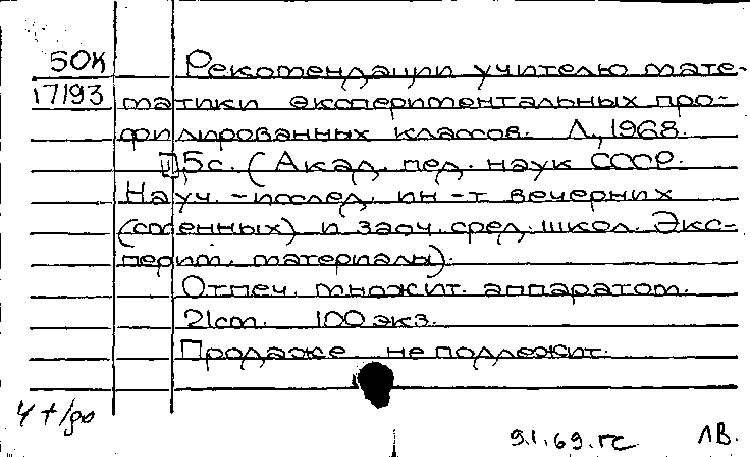 50К Рекомендации учителю мате-
17193 матики экспериментальных про-
филированных классов. Л., 1968.
5с. (Акад. пед. наук СССР.
Науч. -послед. ин -т вечерних
(сменных) и заоч. сред. школ. Экс-
перим. материалы).
Отпеч. множит. аппаратом.
21см. 100 экз.
Продаже не подлежит.
9.1.69. ЛВ.